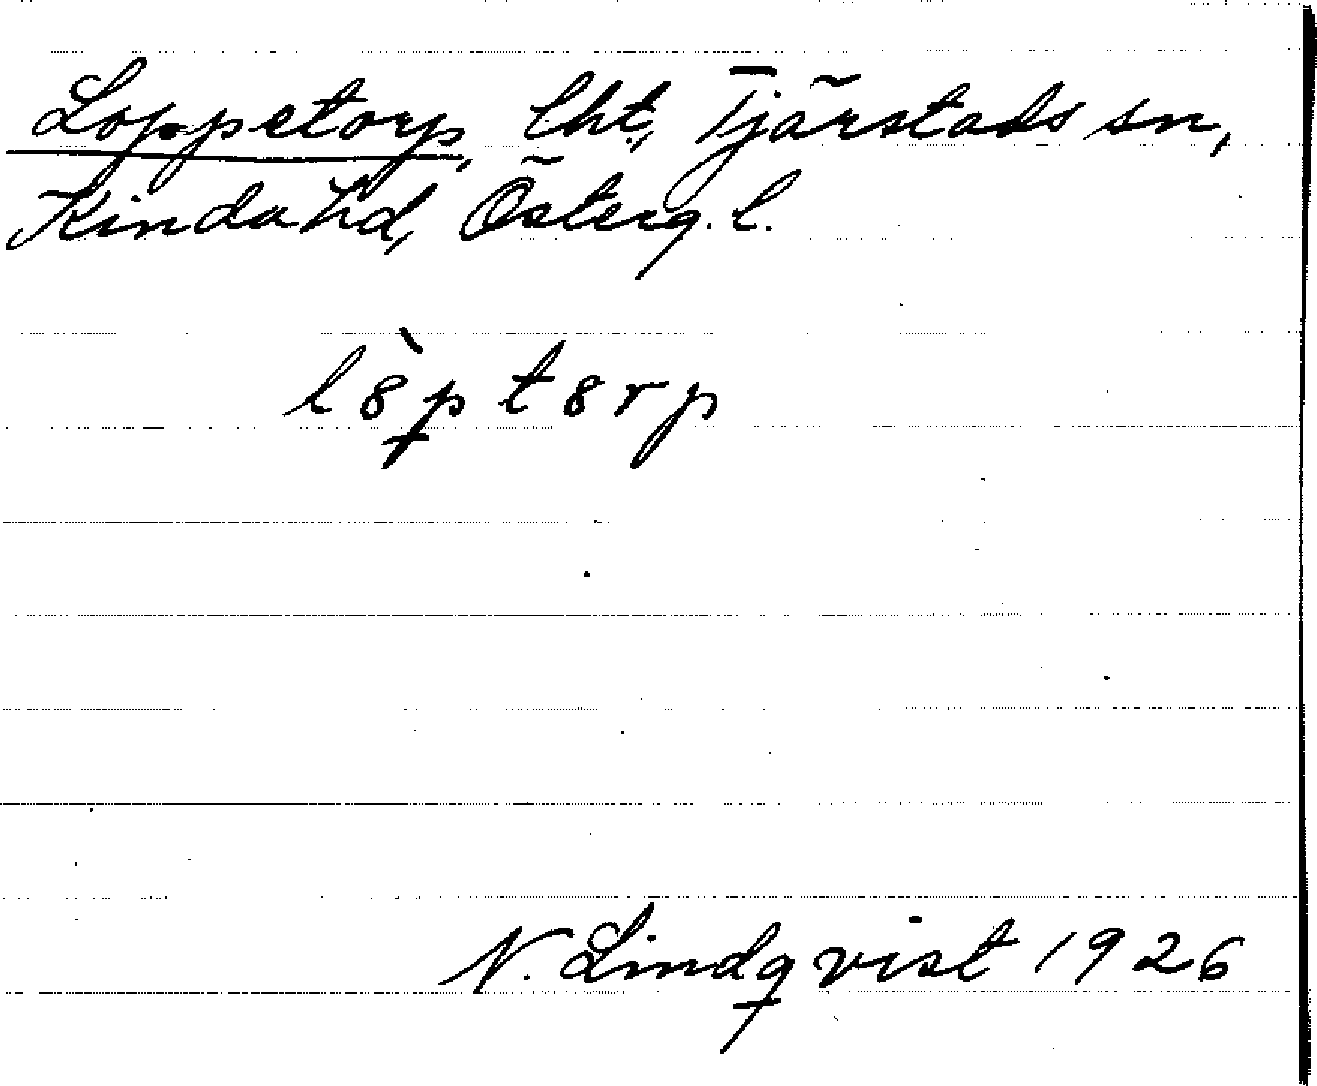 Loppetorp, lht, Tjärstads sn,
Kinda hd, Österg. l.
lòptorp
N. Lindqvist 1926